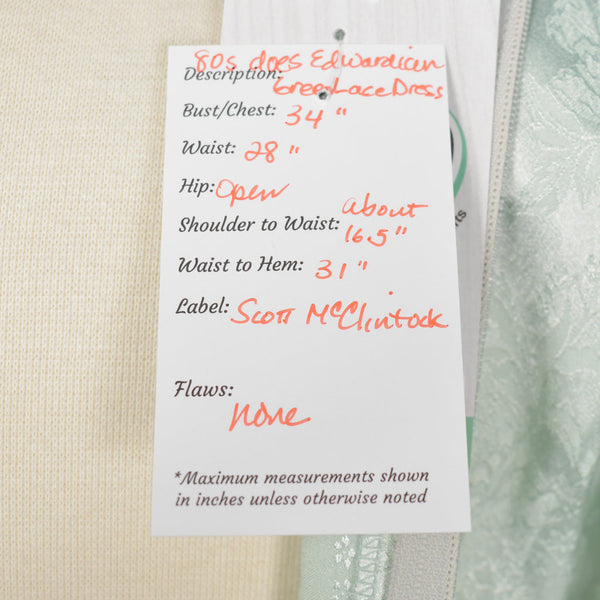 80s does Edwardian
Description: Green Lace Dress
Bust/Chest: 34 "
Waist: 28 "
Hip: Open
Shoulder to Waist: about 16.5 "
Waist to Hem: 31 "
Label: Scott McClintock
Flaws:
none
*Maximum measurements shown
in inches unless otherwise noted